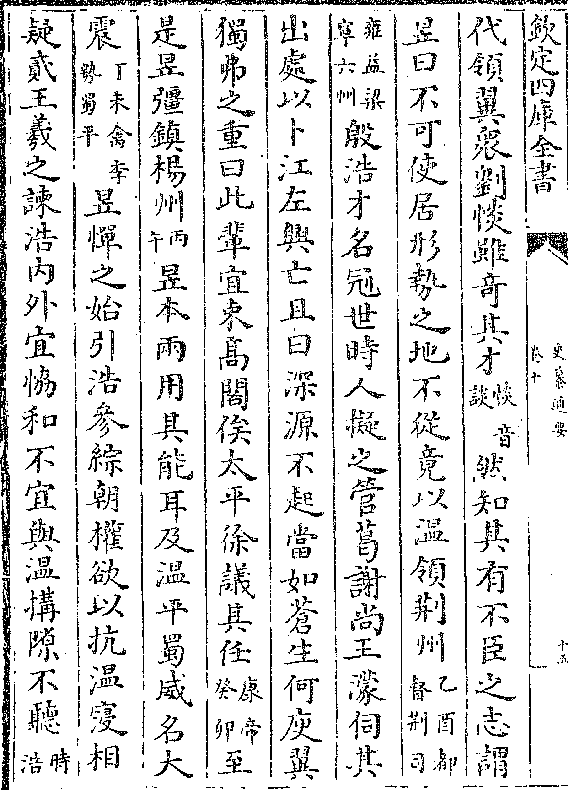 欽定四庫全書
史纂通要
卷十
十五
代領翼衆劉惔雖奇其才惔音談然知其有不臣之志謂
昱曰不可使居形勢之地不從竟以溫領荆州乙酉都督荆司
雍益梁寧六州殷浩才名冠世時人擬之管葛謝尚王濛伺其
出處以卜江左興亡且曰深源不起當如蒼生何庾翼
獨弗之重曰此輩宜束髙閣俟太平徐議其任康帝癸卯至
是昱彊鎮楊州丙午昱本兩用其能耳及溫平蜀威名大
震丁未禽李勢蜀平昱憚之始引浩參綜朝權欲以抗溫寖相
疑貳王羲之諫浩内外宜恊和不宜與溫搆隙不聽時浩